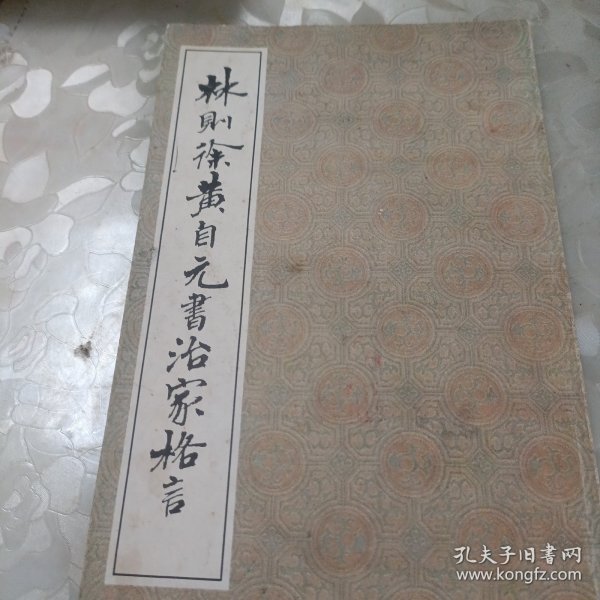 林则徐黄自元書治家格言
孔夫子旧书网
www.kongfz.com